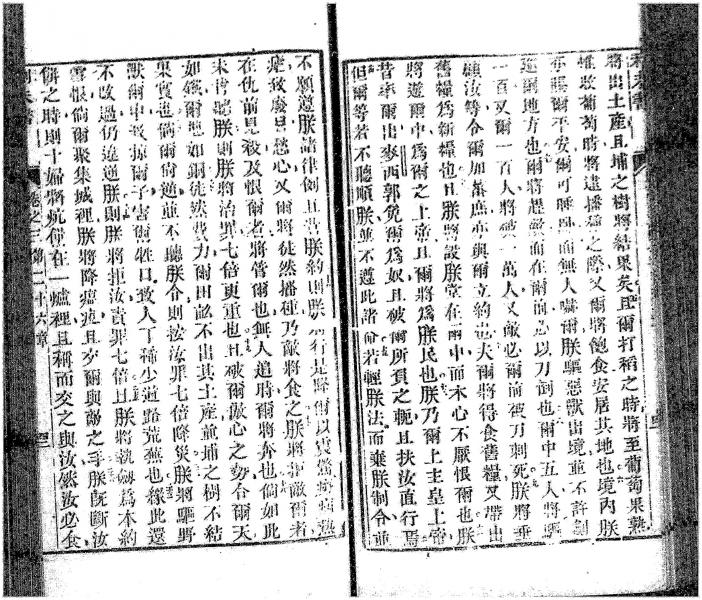 將出土產且埔之樹將結果矣且爾打稻之時將至葡萄果熟
收葡萄時將逮播種之際又爾將飽食安居其地也境內朕
賜平安爾可睡臥而無人嚇爾朕驅惡獸出境並不許劍
進爾地方也爾將趕敵而在爾前必以刀倒也爾中五人將驅
一百又爾一百人將破一萬人又敵必爾前被刀刺死朕將垂
顧汝等令爾加蕃庶亦與爾立約也夫爾將得食舊糧又帶出
舊糧爲新糧也且朕將設朕堂在爾中而朕心不厭恨爾也朕
將遊爾中爲爾之上帝且爾將爲朕民也朕乃爾上主皇上帝
昔率爾出麥西郭免爾爲奴且破爾所負之軛且扶汝直行焉
但爾等若不聽順朕並不遵此諸命若輕朕法而棄朕制令並
不願遵朕諸律例且背朕約則朕行是降爾以
瘧致廢目愁心又爾將徒然播種乃敵將食之朕將拒敵爾者
在仇前見殺及恨爾者將管爾也無人追時爾將奔也倘如此
未肯聽朕則朕將治罪七倍更重也且破爾傲心之勢令爾天
如鐵爾地如銅徒然費力爾田畝不出其土產並埔之樹不結
果實也倘爾尚逆並不聽朕令則按汝罪七倍降災朕將驅野
獸爾中致掠爾子害爾牲口致人丁稀少道路荒蕪也緣此還
不改過仍逆朕則朕將拒汝責罪七倍且朕將執劍爲本約
雪恨倘爾聚集城裡朕將降瘟疫且交爾與敵之手朕旣斷汝
餅之時則十婦將炕餅在一爐裡且稱而交之與汝然汝必食
卷之三 第二十六章